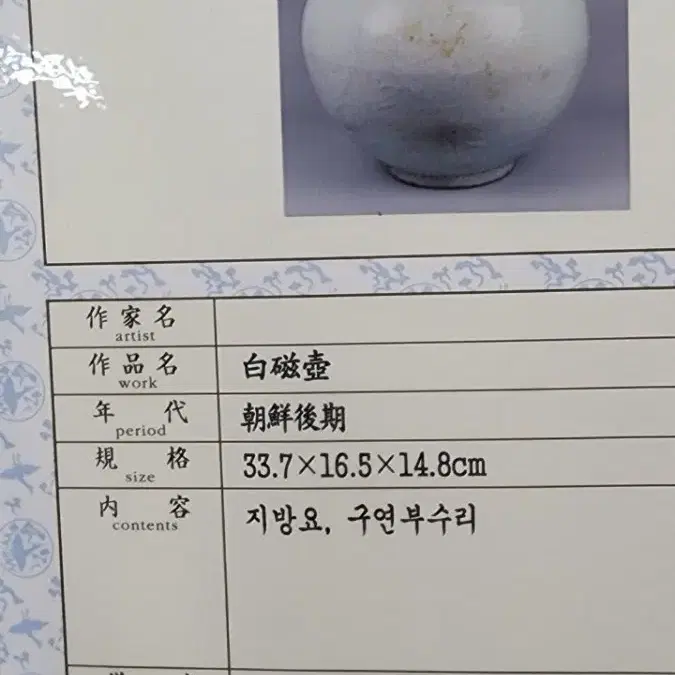 作家名
artist
作品名 白磁壺
work
年代 朝鮮後期
period
規格 33.7×16.5×14.8cm
size
内容 지방요, 구연부수리
contents